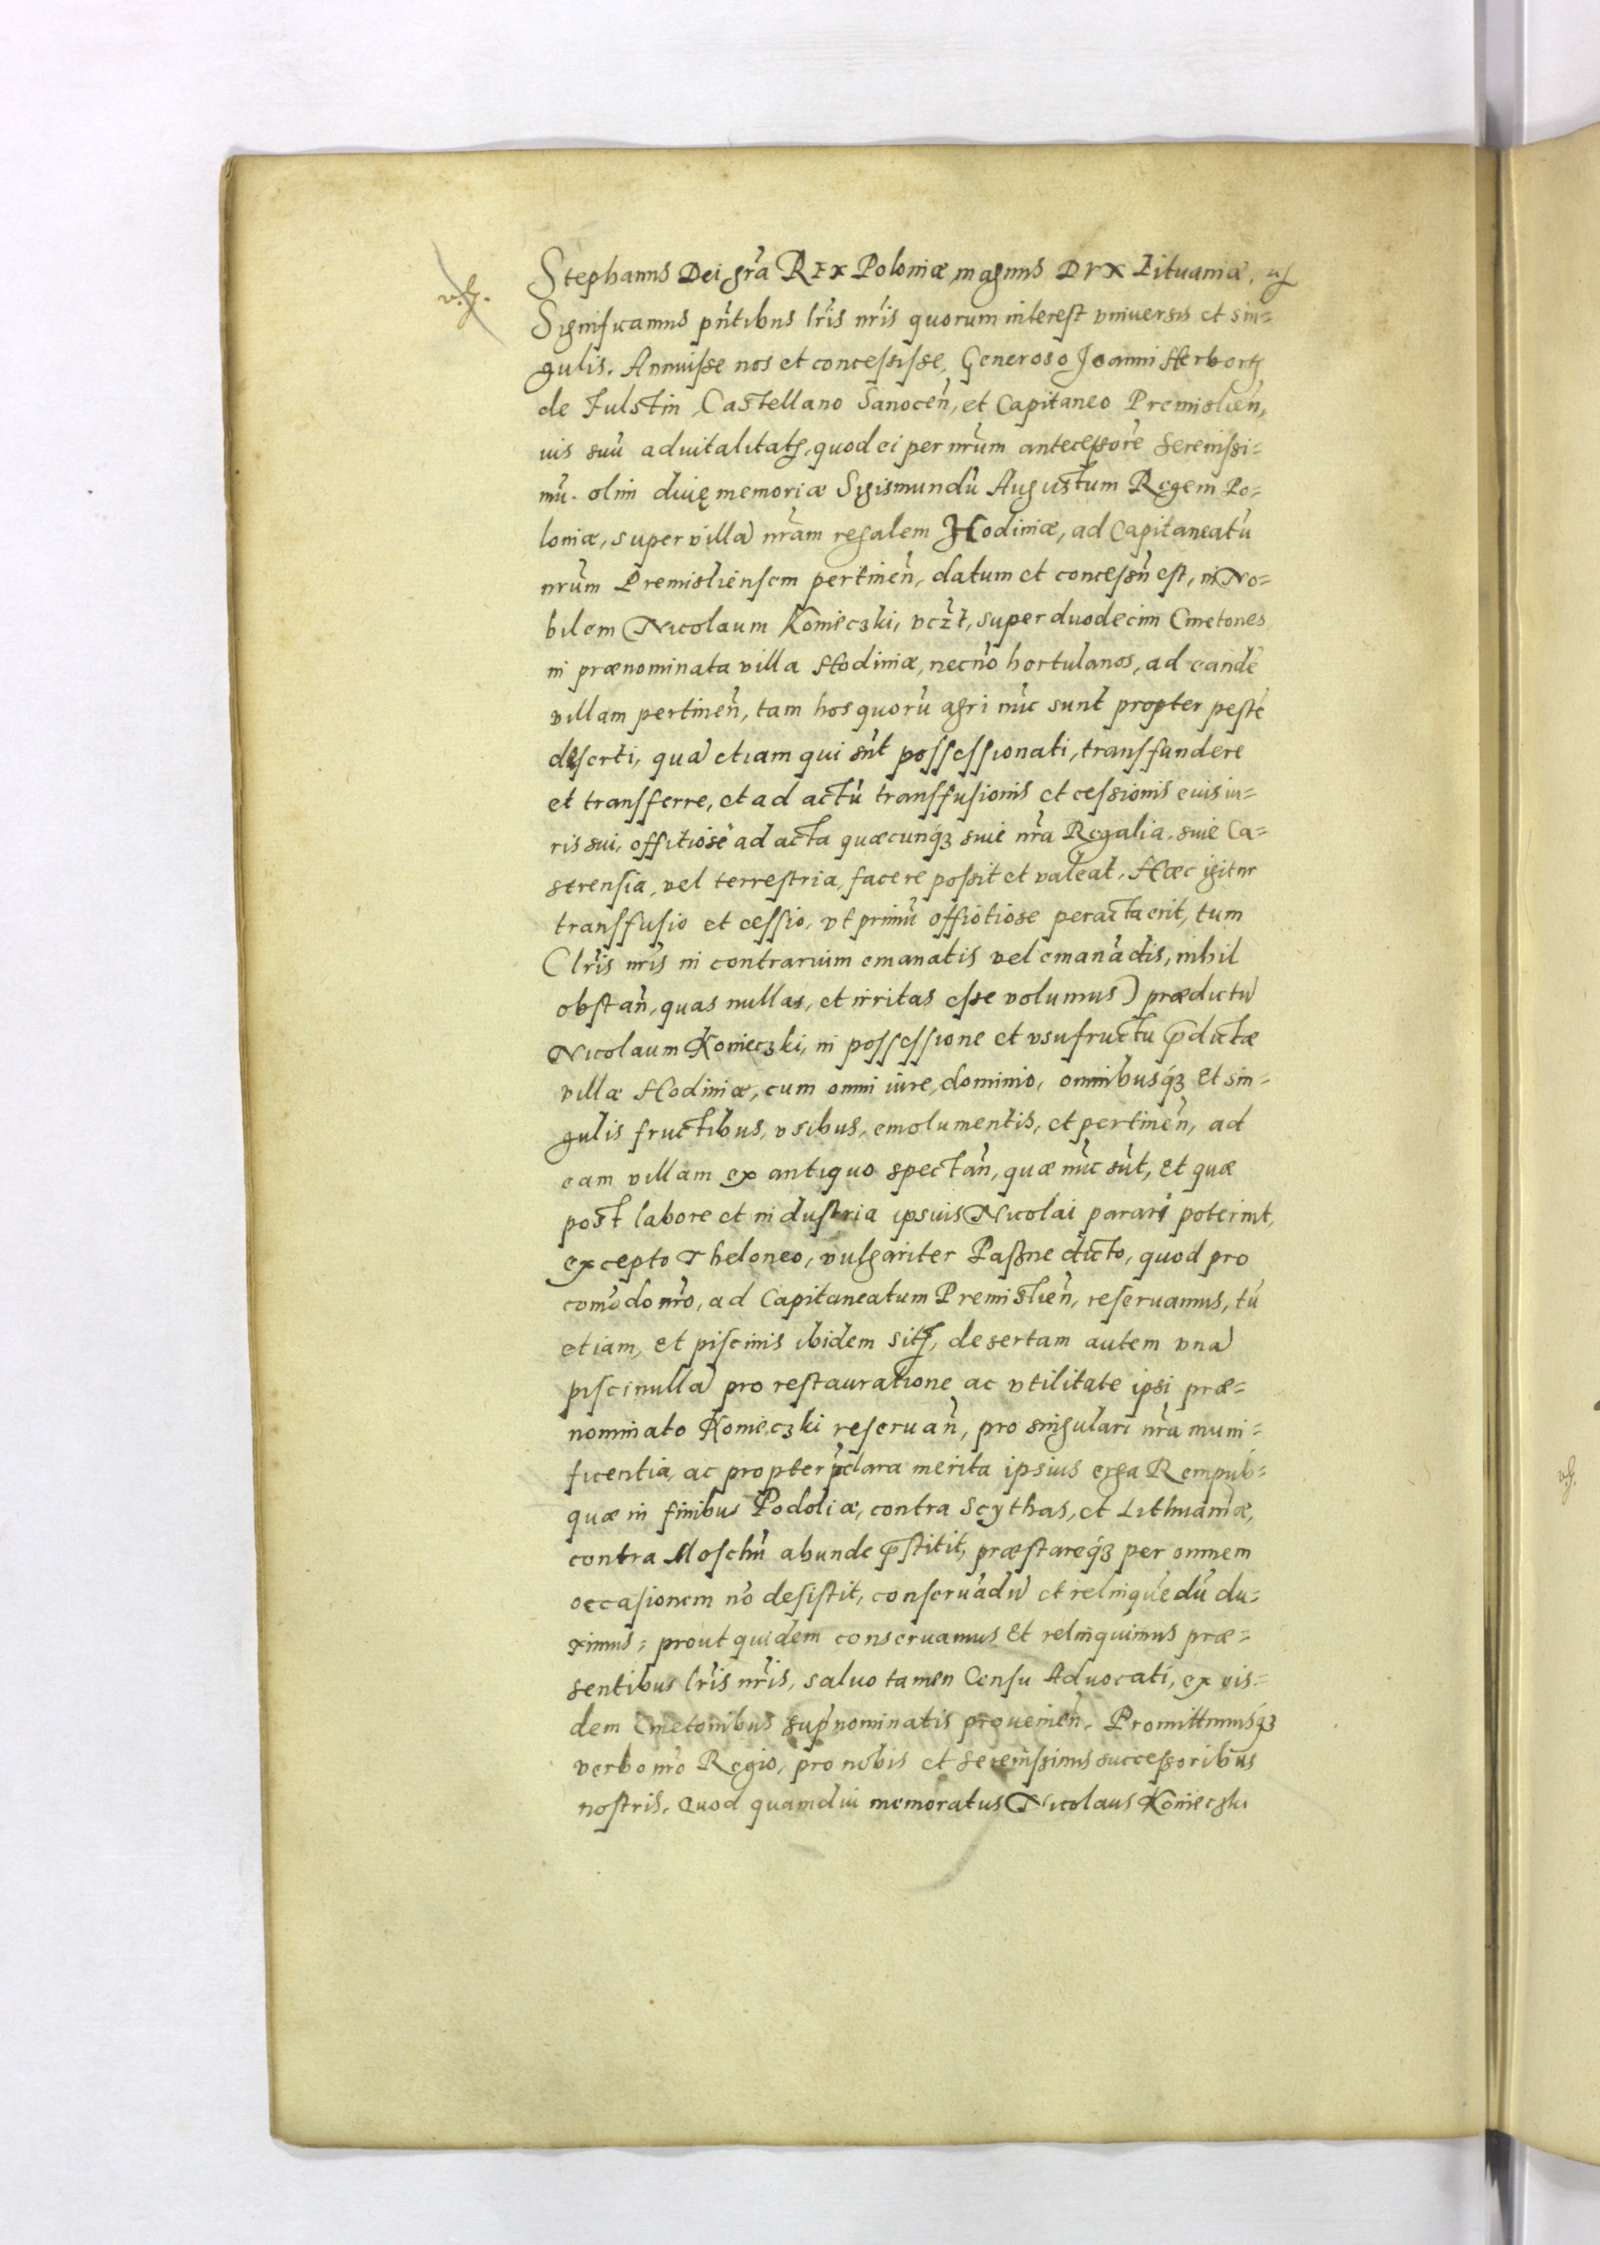 Stephanus Dei gr̃a REX Poloniæ, magnus DVX Lituaniæ,
Significamus pñtibus lr̃is nr̃is quorum interest vniuersis et sin=
gulis. Annuisse nos et concessisse, Generoso Joanni Herbort
de Fulstin, Castellano Sanoceñ, et Capitaneo Premislieñ,
ius suũ aduitalitatis, quod ei per nr̃um antecessorẽ Serenissi=
mũ. olim diuę memoriæ Sigismundũ Augustum Regem Po=
loniæ, super villã nr̃am regalem Hodiniæ, ad Capitaneatũ
nr̃um Premisliensem pertineñ, datum et concessũ est, in No=
bilem Nicolaum Konieczki, vcz̃t, super duodecim Cmetones
in prænominata villa Hodiniæ, necño hortulanos, ad eandẽ
villam pertineñ, tam hos quorũ agri nũc sunt propter pestẽ
deserti, quã etiam qui sũt possessionati, transfundere
et transferre, et ad actũ transfusionis et cessionis eius iu=
ris sui, offitiosẽ ad acta quæcunqꝫ siue nr̃a Regalia, siue Ca=
strensia, vel terrestria, facere possit et valeat. Hæc igitur
transfusio et cessio, vt primũ offiotiose peracta erit, tum
(lr̃is nr̃is in contrarium emanatis vel emanãdis, nihil
obstañ, quas nullas, et irritas esse volumus) prædictũ
Nicolaum Konieczki, in possessione et vsufructu p̃dictæ
villæ Hodiniæ, cum omni iure, dominio, omnibusqꝫ et sin=
gulis fructibus, vsibus, emolumentis, et pertineñ, ad
eam villam ex antiquo spectañ, quæ nũc sũt, et quæ
post labore et industria ipsius Nicolai parari poterint,
excepto Theloneo, vulgariter Passne dicto, quod pro
com̃odo nr̃o, ad Capitaneatum Premislieñ, reseruamus, tũ
etiam, et piscinis ibidem sitis, desertam autem vnã
piscinullã pro restauratione ac vtilitate ipsi præ=
nominato Konieczki reseruañ, pro singulari nr̃a muni=
ficentia, ac propter p̃clara merita ipsius erga Rempub=
quæ in finibus Podoliæ, contra Scythas, et Lithuaniæ,
contra Moschũ abunde p̃stitit, præstareqꝫ per omnem
occasionem nõ desistit, conseruãdũ et relinquẽdũ du=
ximus, prout quidem conseruamus et relinquimus præ=
sentibus lr̃is nr̃is, saluo tamen Censu Aduocati, ex eis=
dem Cmetonibus sup̃nominatis proueнieñ. Promittimusqꝫ
verbo nr̃o Regio, pro nobis et serenissimis successoribus
nostris. Quod quamdiu memoratus Nicolaus Konieczki